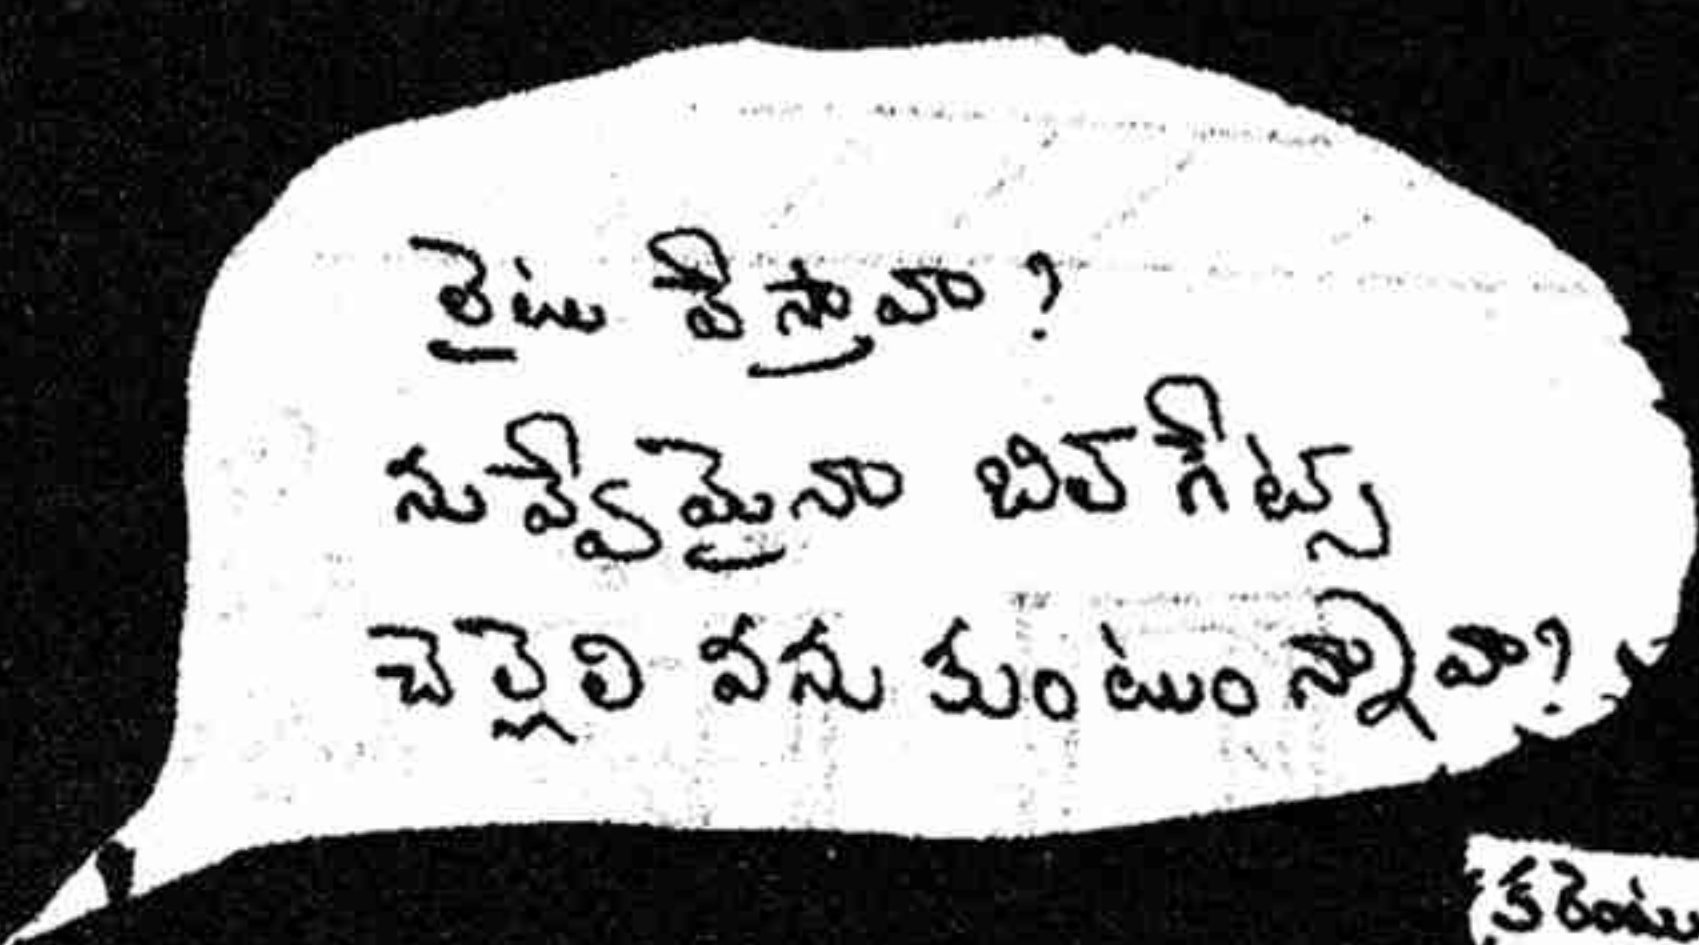 లైటు వేస్తావా?
నువ్వేమైనా బిల్‌గేట్స్
చెల్లెలి వనుకుంటున్నావా?
కరెంటు